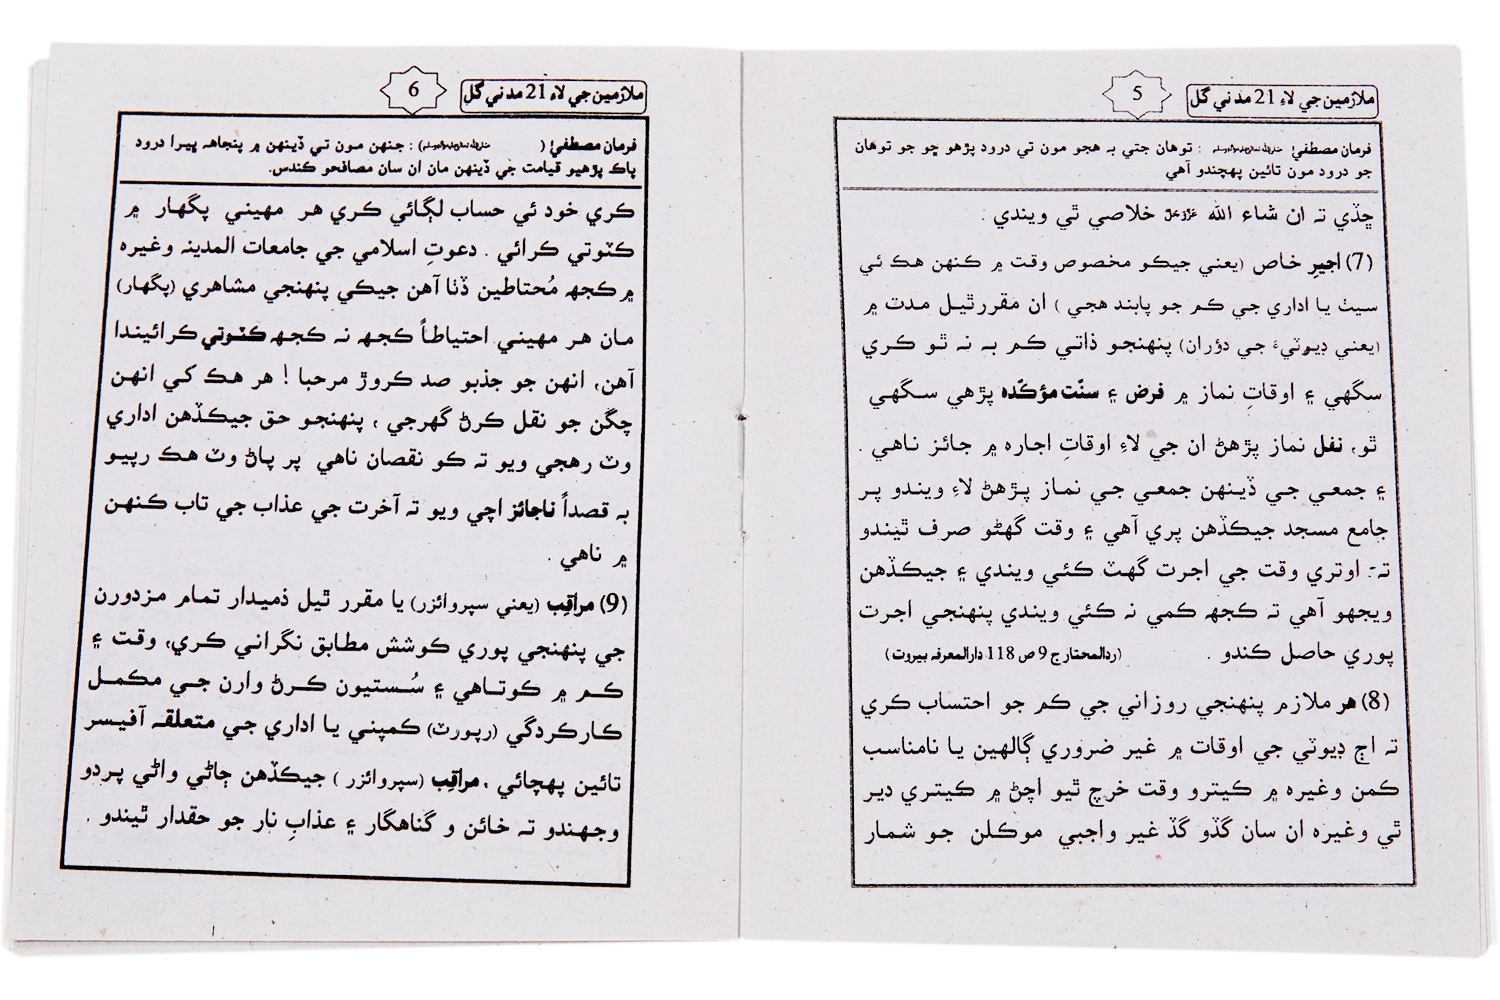 ملازمين جي لاءِ 21 مدني گل
5
فرمان مصطفيٰ صلى الله تعالى عليه واله وسلم : توهان جتي به هجو مون تي درود پڙهو ڇو جو توهان
جو درود مون تائين پهچندو آهي
ڇڏي ته ان شاء الله عزوجل خلاصي ٿي ويندي .
(7) اجيرِ خاص (يعني جيڪو مخصوص وقت ۾ ڪنهن هڪ ئي
سيٺ يا اداري جي ڪم جو پابند هجي ) ان مقررٿيل مدت ۾
(يعني ڊيوٽيءَ جي دؤران) پنهنجو ذاتي ڪم به نه ٿو ڪري
سگهي ۽ اوقاتِ نماز ۾ فرض ۽ سنّت مؤڪّده پڙهي سگهي
ٿو، نفل نماز پڙهڻ ان جي لاءِ اوقاتِ اجاره ۾ جائز ناهي .
۽ جمعي جي ڏينهن جمعي جي نماز پڙهڻ لاءِ ويندو پر
جامع مسجد جيڪڏهن پري آهي ۽ وقت گهڻو صرف ٿيندو
ته اوتري وقت جي اجرت گهٽ ڪئي ويندي ۽ جيڪڏهن
ويجهو آهي ته ڪجهه ڪمي نه ڪئي ويندي پنهنجي اجرت
پوري حاصل ڪندو . (ردالمحتار ج 9 ص 118 دارالمعرفه بيروت)
(8) هر ملازم پنهنجي روزاني جي ڪم جو احتساب ڪري
ته اڄ ڊيوٽي جي اوقات ۾ غير ضروري ڳالهين يا نامناسب
ڪمن وغيره ۾ ڪيترو وقت خرچ ٿيو اچڻ ۾ ڪيتري دير
ٿي وغيره ان سان گڏو گڏ غير واجبي موڪلن جو شمار
ملازمين جي لاءِ 21 مدني گل
6
فرمان مصطفيٰ (صلى الله تعالى عليه واله وسلم) : جنهن مون تي ڏينهن ۾ پنجاهه ڀيرا درود
پاڪ پڙهيو قيامت جي ڏينهن مان ان سان مصافحو ڪندس.
ڪري خود ئي حساب لڳائي ڪري هر مهيني پگهار ۾
ڪٽوتي ڪرائي . دعوتِ اسلامي جي جامعات المدينه وغيره
۾ ڪجهه مُحتاطين ڏٺا آهن جيڪي پنهنجي مشاهري (پگهار)
مان هر مهيني احتياطاً ڪجهه نه ڪجهه ڪٽوتي ڪرائيندا
آهن، انهن جو جذبو صد ڪروڙ مرحبا ! هر هڪ کي انهن
چڱن جو نقل ڪرڻ گهرجي ، پنهنجو حق جيڪڏهن اداري
وٽ رهجي ويو ته ڪو نقصان ناهي پر پاڻ وٽ هڪ رپيو
به قصداً ناجائز اچي ويو ته آخرت جي عذاب جي تاب ڪنهن
۾ ناهي .
(9) مراقِب (يعني سپروائزر) يا مقرر ٿيل ذميدار تمام مزدورن
جي پنهنجي پوري ڪوشش مطابق نگراني ڪري، وقت ۽
ڪم ۾ ڪوتاهي ۽ سُستيون ڪرڻ وارن جي مڪمل
ڪارڪردگي (رپورٽ) ڪمپني يا اداري جي متعلقه آفيسر
تائين پهچائي ، مراقِب (سپروائزر ) جيڪڏهن ڄاڻي واڻي پردو
وجهندو ته خائن و گناهگار ۽ عذابِ نار جو حقدار ٿيندو .